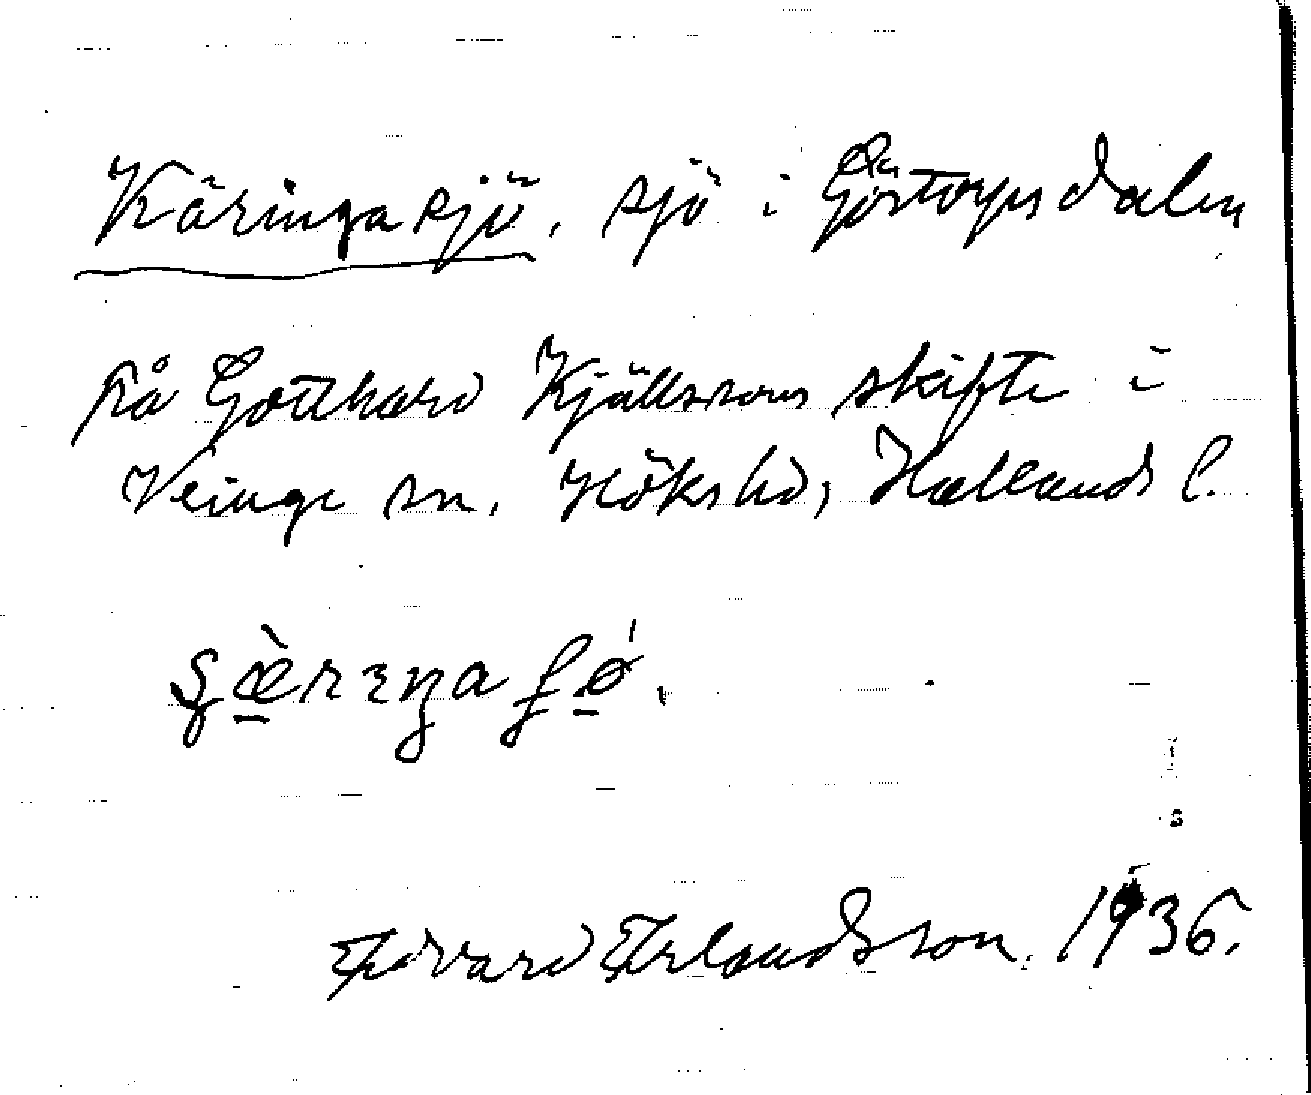 Käringasjö, sjö i Göstorpsdalen
på Gotthard Kjällssons skifte i
Veinge sn, Höks hd, Hallands l.
Edvard Erlandsson. 1936.